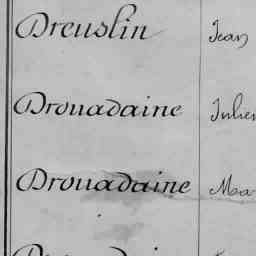 Dreuslin Jean
Drouadaine Julien
Drouadaine Ma